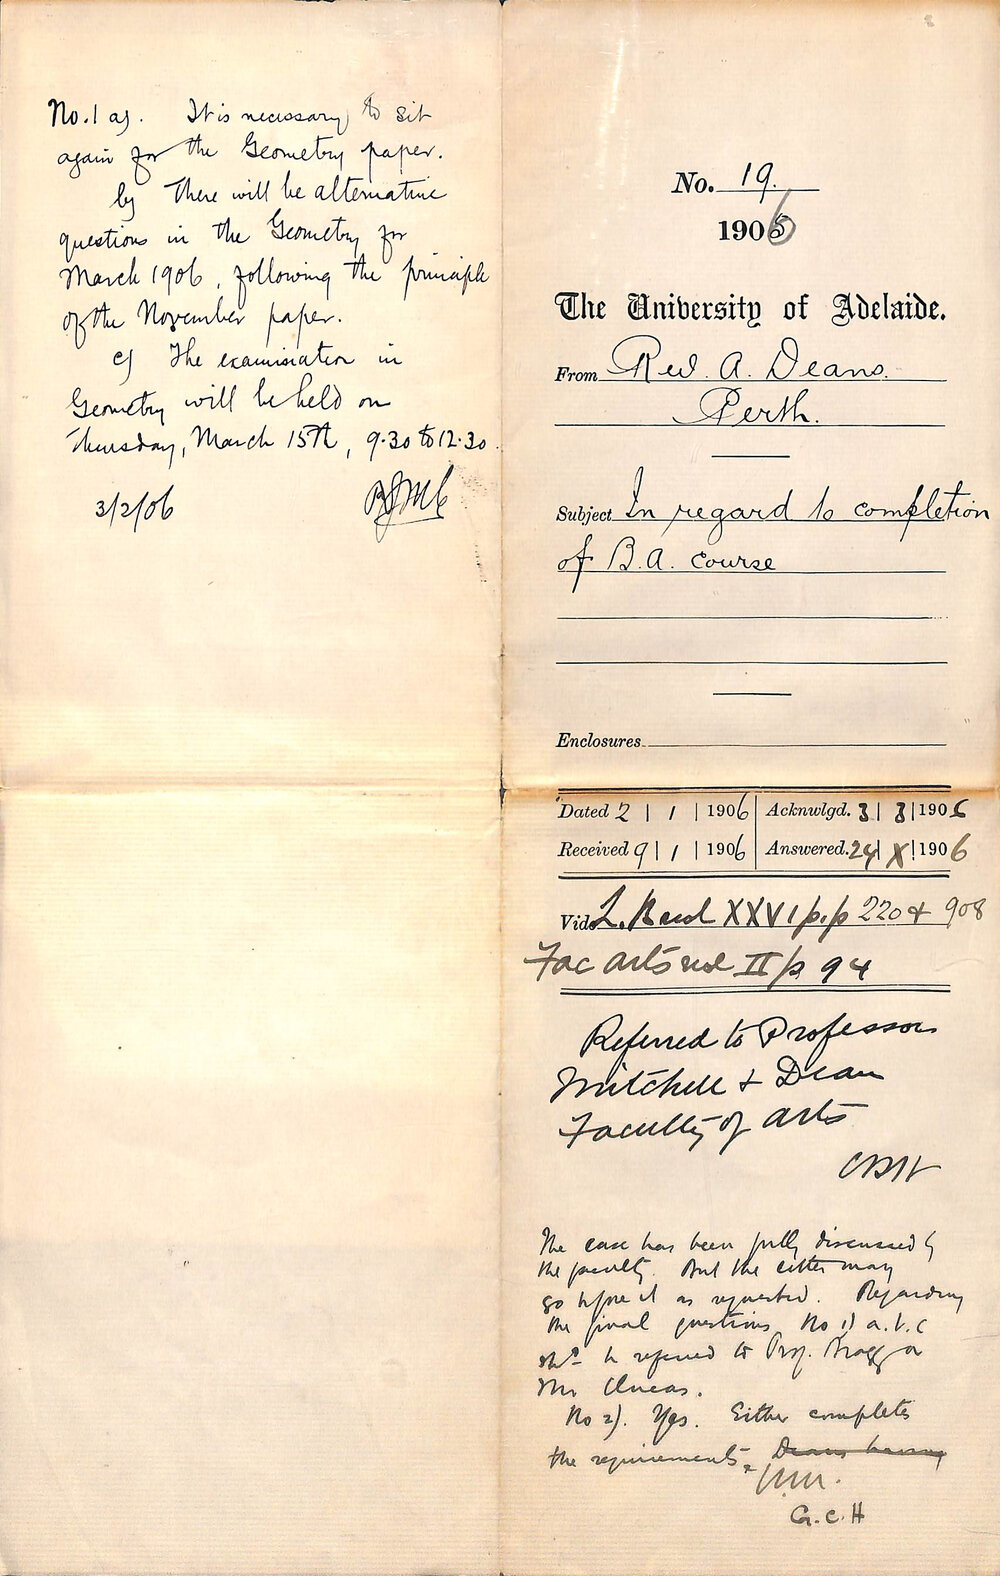 No. 1 a). It is necessary to sit
again for the Geometry paper.
b) There will be alternative
questions in the Geometry for
March 1906, following the principle
of the November paper.
c) The examination in
Geometry will be held on
Thursday, March 15th, 9.30 to 12.30.
3/2/06
No. 19.
1906
The University of Adelaide.
From Rev. A. Deans.
Perth.
Subject In regard to completion
of B.A. course
Enclosures
Dated 2 | 1 | 1906 Acknwlgd. 3 | 3 | 1906
Received 9 | 1 | 1906 Answered. 24 | X | 1906
Vide L. XXVI p.p 220 & 908
Fac Arts II p 94
Referred to Professor
Mitchell & Dean
Faculty of Arts
The case has been fully discussed by
the faculty. But the letter may
go before it as requested. Regarding
the final questions, No 1) a.b.c
shd be referred to Prof. Bragg or
Mr
No 2). Yes. Either completes
the requirements. Deans having
W.M.
G.C.H